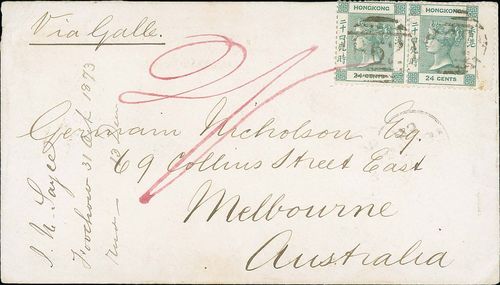 Via Galle.
HONGKONG
24 CENTS
HONGKONG
24 CENTS
Germain Nicholson Esq.
69 Collins Street East
Melbourne
Australia
Foochow 31 Oct 1873